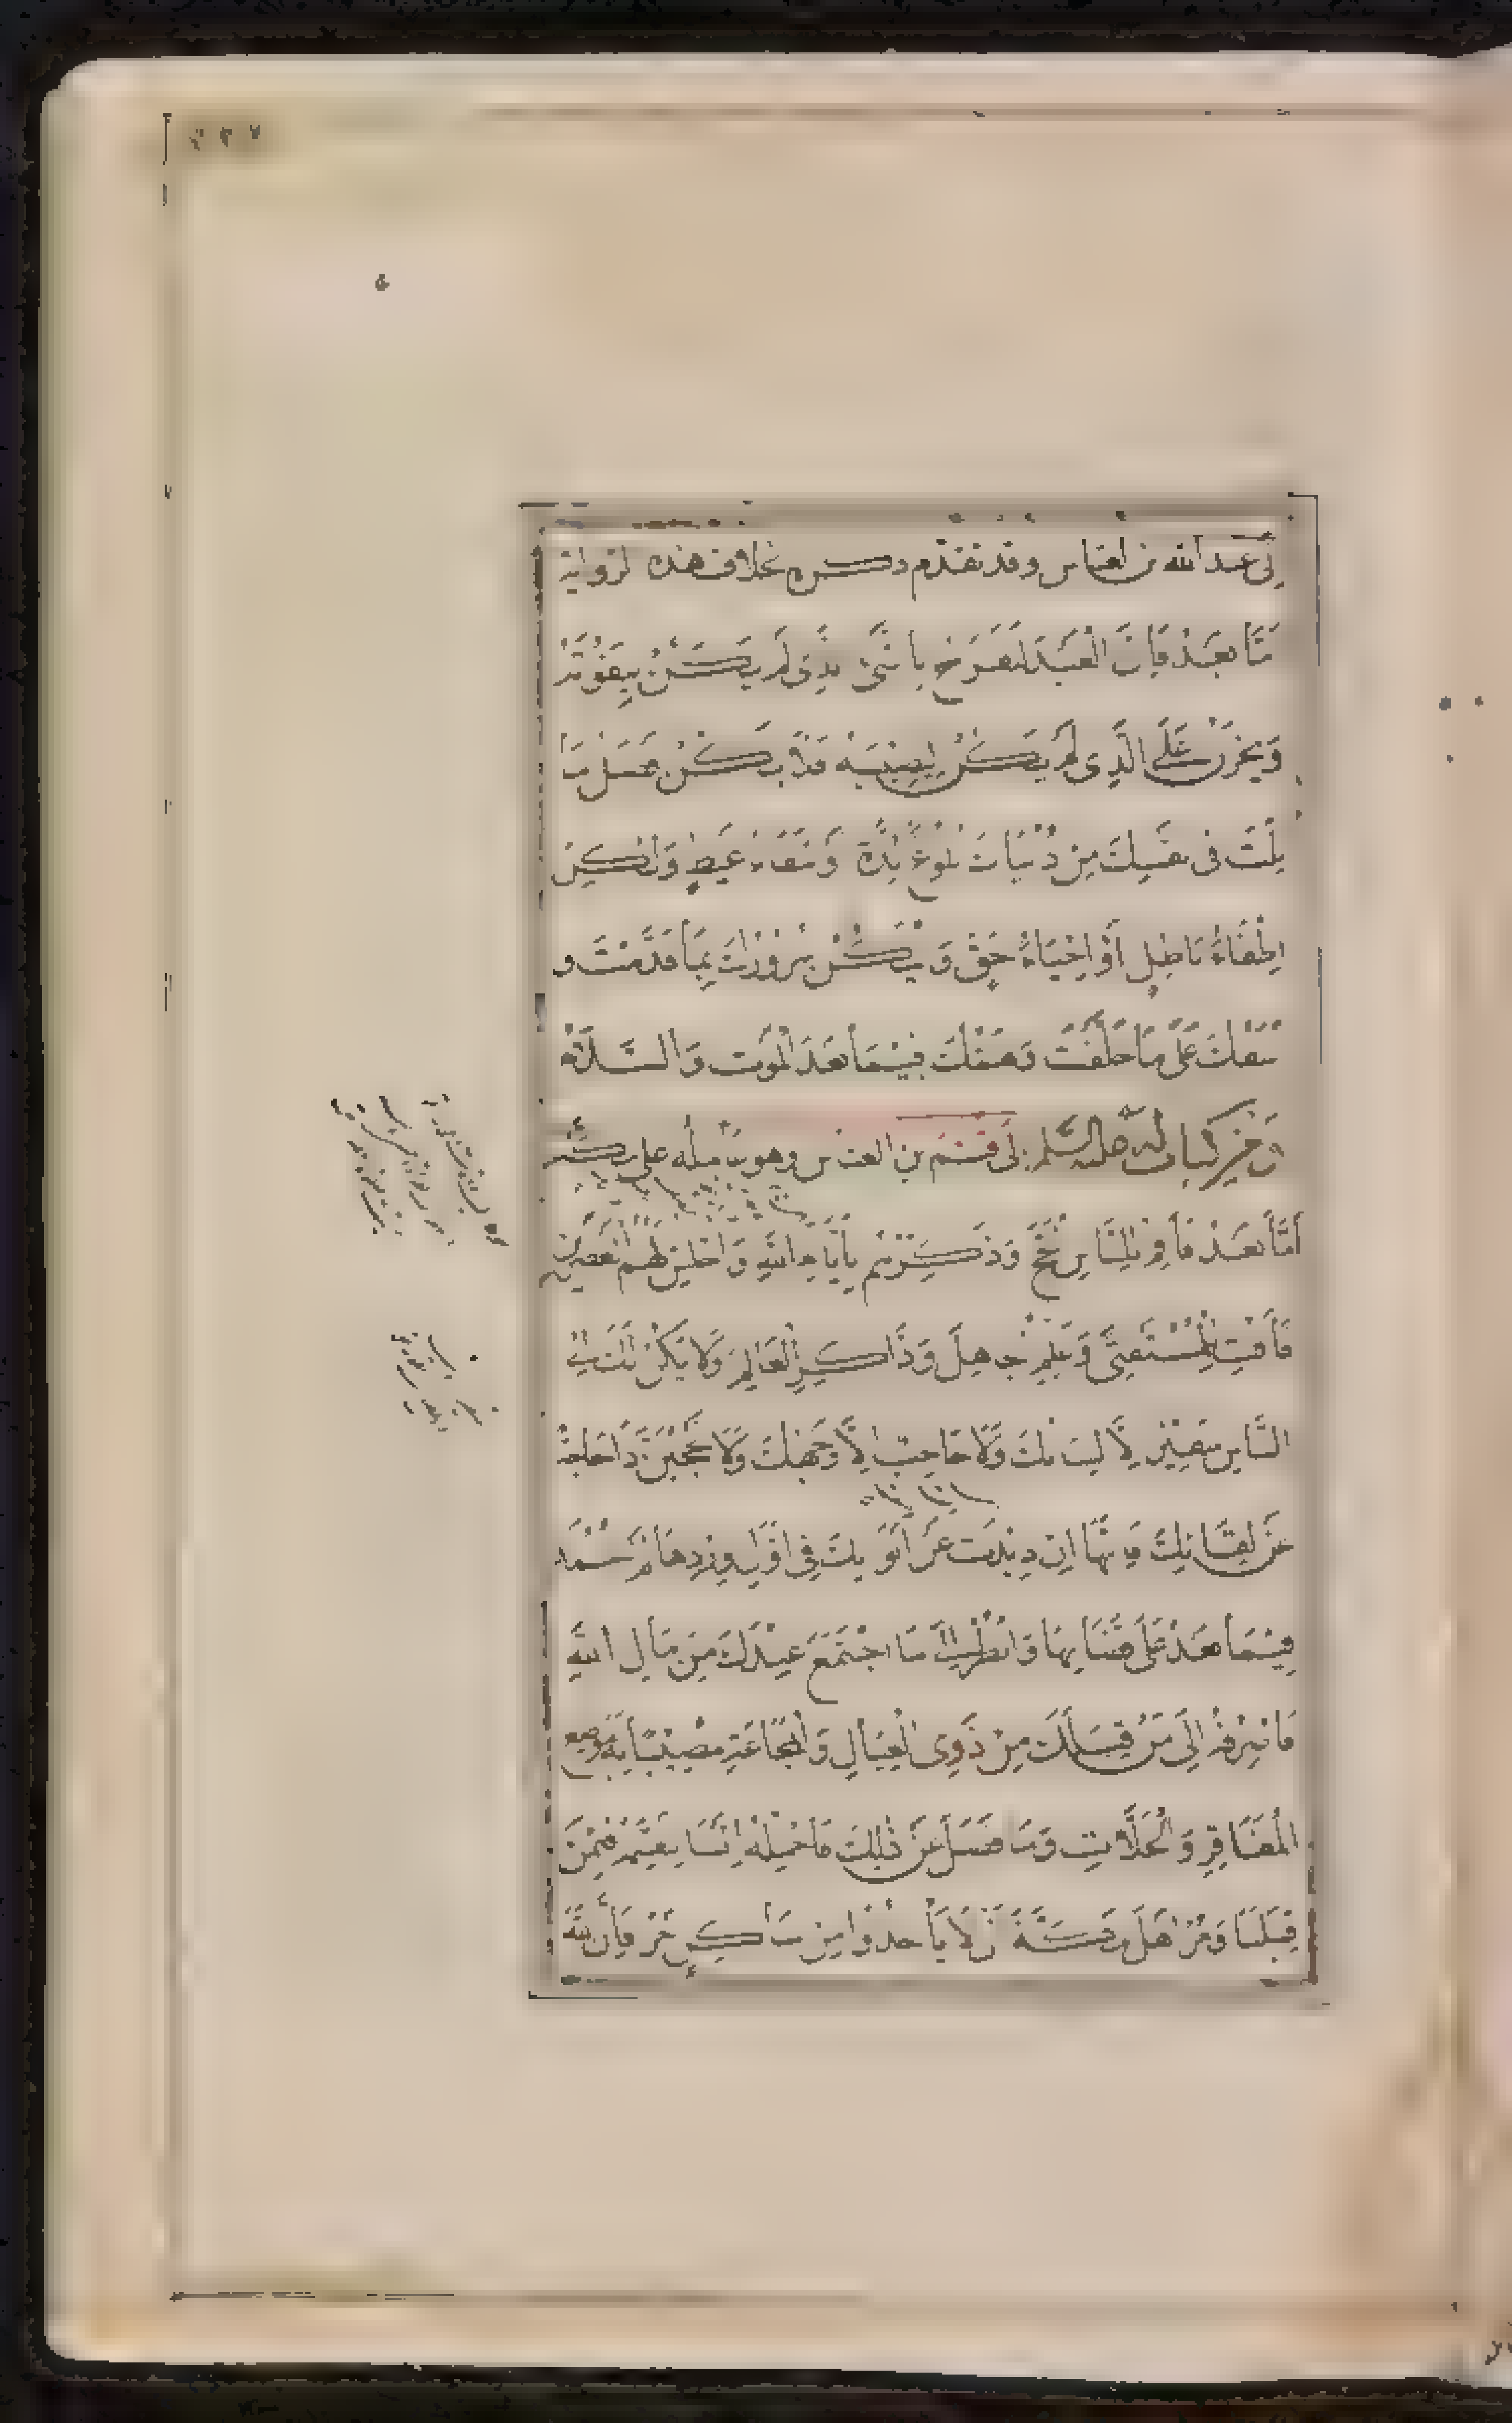 إلى عبد الله بن العباس وقد تقدم ذكره بخلاف هذه الرواية
أَمَّا بَعْدُ فَإِنَّ الْعَبْدَ لَيَفْرَحُ بِالشَّيْءِ الَّذِي لَمْ يَكُنْ لِيَفُوتَهُ
وَيَحْزَنُ عَلَى الَّذِي لَمْ يَكُنْ لِيُصِيبَهُ فَلَا يَكُنْ أَفْضَلَ مَا
نِلْتَ فِي نَفْسِكَ مِنْ دُنْيَاكَ بُلُوغُ لَذَّةٍ أَوْ شِفَاءُ غَيْظٍ وَلٰكِنْ
إِطْفَاءُ بَاطِلٍ أَوْ إِحْيَاءُ حَقٍّ وَلْيَكُنْ سُرُورُكَ بِمَا قَدَّمْتَ و
أَسَفُكَ عَلَى مَا خَلَّفْتَ وَهَمُّكَ فِيمَا بَعْدَ الْمَوْتِ وَالسَّلَامُ
وَمِنْ كتاب له عليه السلم إلى قُثَمَ بن العباس وهو عامله على مكة
أَمَّا بَعْدُ فَأَقِمْ لِلنَّاسِ الْحَجَّ وَذَكِّرْهُمْ بِأَيَّامِ اللَّهِ وَاجْلِسْ لَهُمُ الْعَصْرَيْنِ
فَأَفْتِ الْمُسْتَفْتِيَ وَعَلِّمِ الْجَاهِلَ وَذَاكِرِ الْعَالِمَ وَلَا يَكُنْ لَكَ إِلَى
النَّاسِ سَفِيرٌ إِلَّا لِسَانُكَ وَلَا حَاجِبٌ إِلَّا وَجْهُكَ وَلَا تَحْجُبَنَّ ذَا حَاجَةٍ
عَنْ لِقَائِكَ بِهَا فَإِنَّهَا إِنْ ذِيدَتْ عَنْ أَبْوَابِكَ فِي أَوَّلِ وِرْدِهَا لَمْ تُحْمَدْ
فِيمَا بَعْدُ عَلَى قَضَائِهَا وَانْظُرْ إِلَى مَا اجْتَمَعَ عِنْدَكَ مِنْ مَالِ اللَّهِ
فَاصْرِفْهُ إِلَى مَنْ قِبَلَكَ مِنْ ذَوِي الْعِيَالِ وَالْمَجَاعَةِ مُصِيبًا بِهِ مَوَاضِعَ
الْمَفَاقِرِ وَالْخَلَّاتِ وَمَا فَضَلَ عَنْ ذٰلِكَ فَاحْمِلْهُ إِلَيْنَا لِنَقْسِمَهُ فِيمَنْ
قِبَلَنَا وَمُرْ أَهْلَ مَكَّةَ أَنْ لَا يَأْخُذُوا مِنْ سَاكِنٍ أَجْرًا فَإِنَّ اللَّهَ